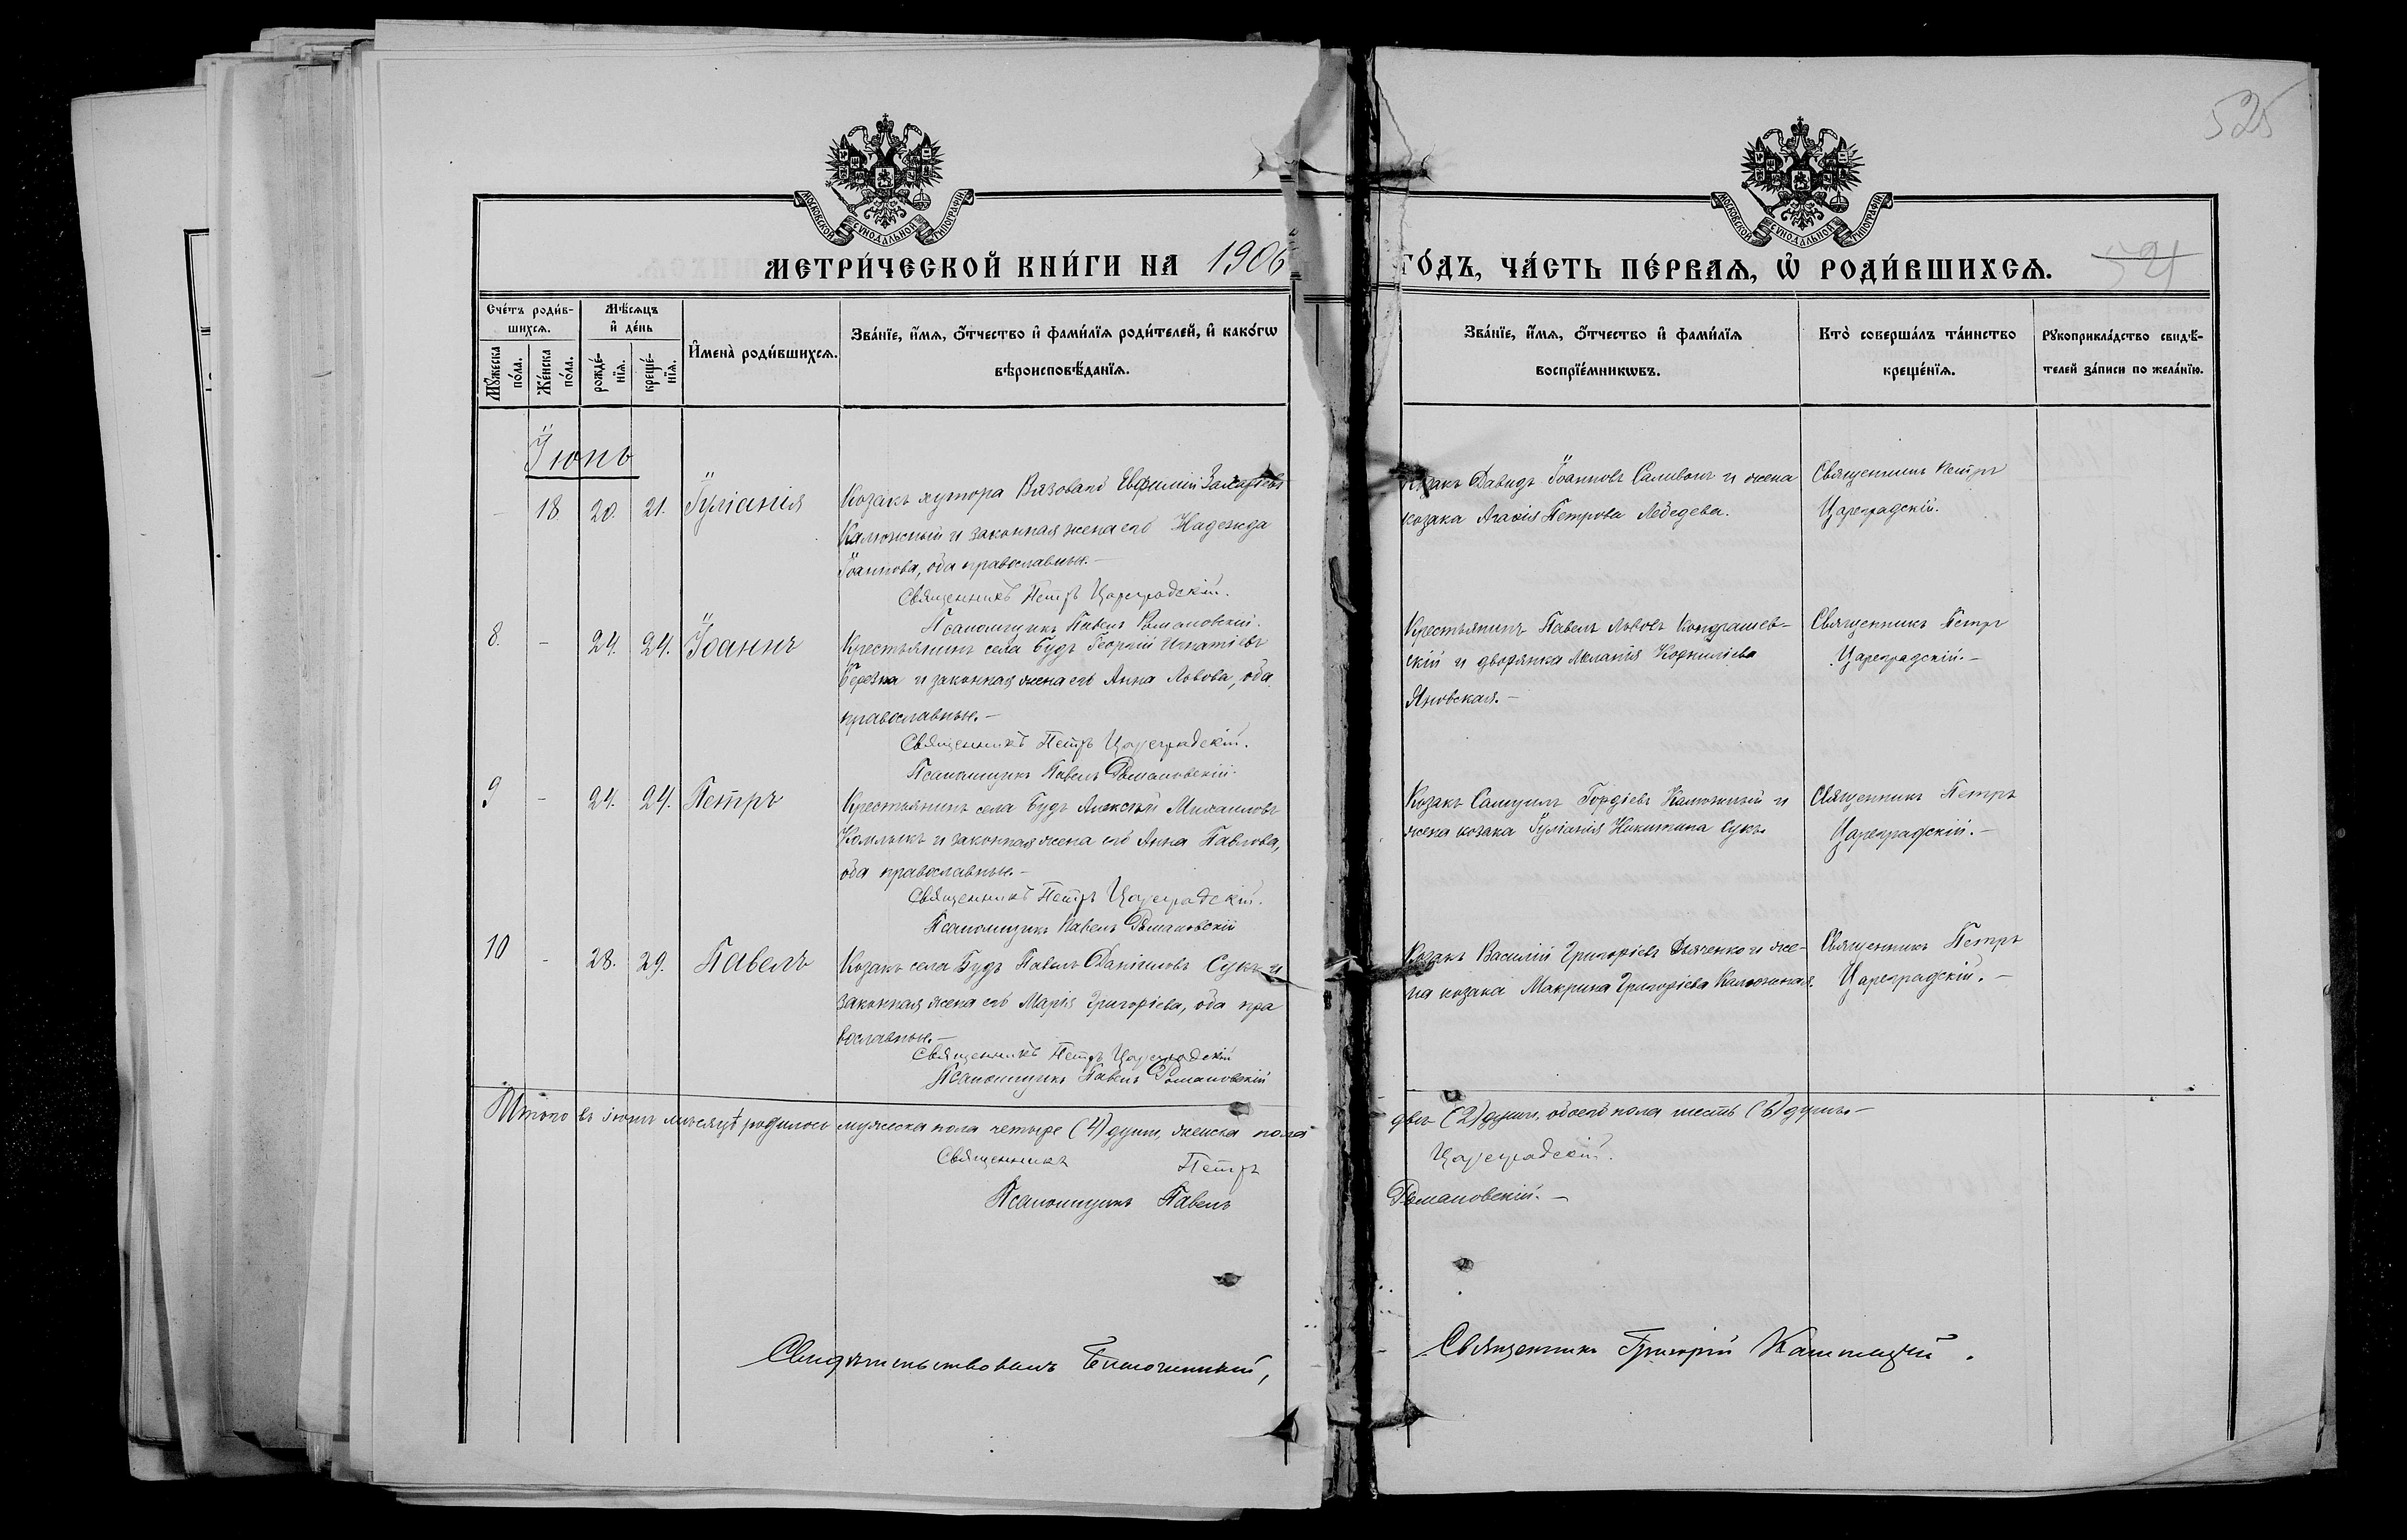 525
МОСКОВСКОЙ СѴНОДАЛЬНОЙ ТИПОГРАФІИ
МОСКОВСКОЙ СѴНОДАЛЬНОЙ ТИПОГРАФІИ
МЕТРИ́ЧЕСКОЙ КНИ́ГИ НА 1906 ГО́ДЪ, ЧА́СТЬ ПЕ́РВАѦ, Ѡ҆ РОДИ́ВШИХСѦ.
524
Сче́тъ роди́в-
шихсѧ.
Мꙋ́жеска по́ла.
Же́нска по́ла.
Мѣ́сѧцъ и҆ де́нь
рожде́-нїѧ.
креще́-нїѧ.
И҆мена̀ роди́вшихсѧ.
Зва́нїе, и҆́мѧ, ѻ҆́тчество и҆ фами́лїѧ роди́телей, и҆ како́гѡ
вѣроисповѣ́данїѧ.
Зва́нїе, и҆́мѧ, ѻ҆́тчество и҆ фами́лїѧ
воспрїе́мникѡвъ.
Кто̀ соверша́лъ та́инство
креще́нїѧ.
Рꙋкоприкла́дство свидѣ́-
телей за́писи по жела́нїю.
Іюнь
- 18. 20. 21. Іуліанія
Козакъ хутора Вязоваго Евфимій Захаріевъ
Калюжный и законная жена его Надежда
Іоаннова, оба православные.-
Священникъ Петръ Цареградскій.
Псаломщикъ Павелъ Романовскій.
Козакъ Давидъ Іоанновъ Саливонъ и жена
козака Агафія Петрова Лебедева.
Священникъ Петръ
Цареградскій.
8. - 24. 24. Іоаннъ
Крестьянинъ села Будъ Георгій Игнатіевъ
Березка и законная жена его Анна Львова, оба
православные.-
Священникъ Петръ Цареградскій.
Псаломщикъ Павелъ Романовскій.
Крестьянинъ Павелъ Львовъ Кондрашев-
скій и дворянка Меланія Корниліева
Яновская.-
Священникъ Петръ
Цареградскій.-
9 - 24. 24. Петръ
Крестьянинъ села Будъ Алексѣй Михаиловъ
и законная жена его Анна Павлова,
оба православные.-
Священникъ Петръ Цареградскій.
Псаломщикъ Павелъ Романовскій
Козакъ Самуилъ Гордіевъ Калюжный и
жена козака Іуліанія Никитина Сукъ.
Священникъ Петръ
Цареградскій.-
10 - 28. 29. Павелъ
Козакъ села Будъ Павелъ Даніиловъ Сукъ и
законная жена его Марія Григоріева, оба пра
вославные.-
Священникъ Петръ Цареградскій
Псаломщикъ Павелъ Романовскій
Козакъ Василій Григоріевъ Дьяченко и же-
на козака Макрина Григоріева Калюжная.
Священникъ Петръ
Цареградскій.-
Итого въ іюнѣ мѣсяцѣ родилось мужеска пола четыре (4) души, женска пола двѣ (2) души, обоего пола шесть (6) душъ.-
Священникъ Петръ Цареградскій.
Псаломщикъ Павелъ Романовскій.-
Свидѣтельствовалъ Благочинный, Священникъ Григорій